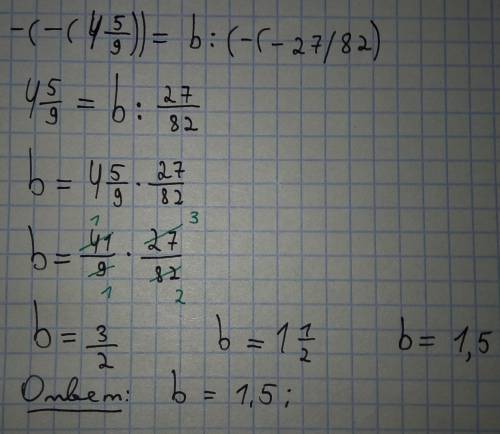 -(-(4 5/9)) = b : (-(-27/82)
4 5/9 = b : 27/82
b = 4 5/9 · 27/82
b = 41/9 · 27/82 1 3 1 2
b = 3/2 b = 1 1/2 b = 1,5
Ответ: b = 1,5;